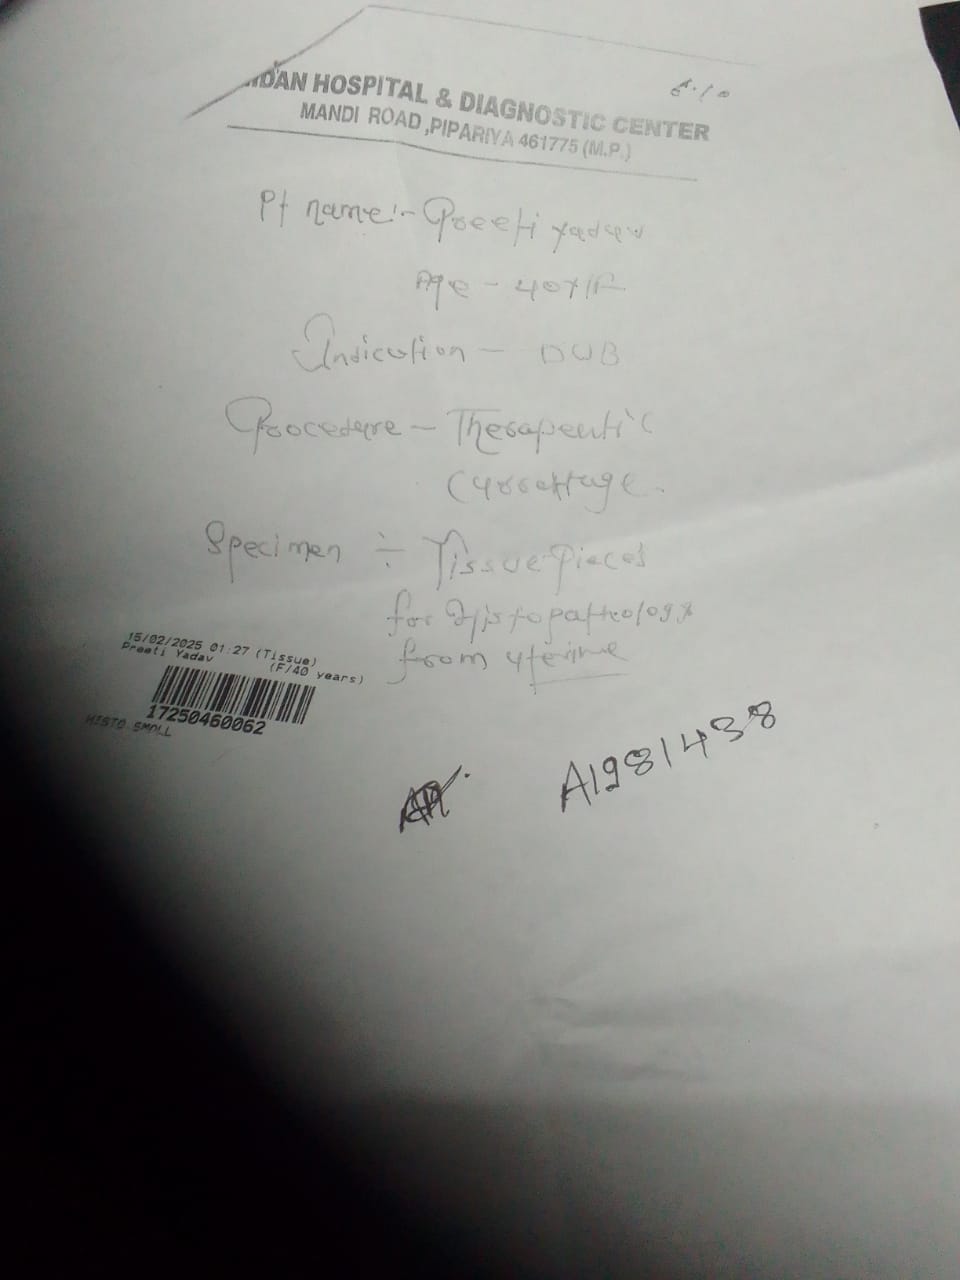 DAN HOSPITAL & DIAGNOSTIC CENTER
MANDI ROAD,PIPARIYA 461775 (M.P.)
Pt name:- Preeti yadav
Age - 40Y/F
Indication - DUB
Procedure - Therapeutic
Curettage.
Specimen ÷ Tissue Pieces
for Histopathology
from uterine
15/02/2025 01:27 (Tissue)
Preeti Yadav (F/40 years)
17250460062
HISTO SMALL
A1981438